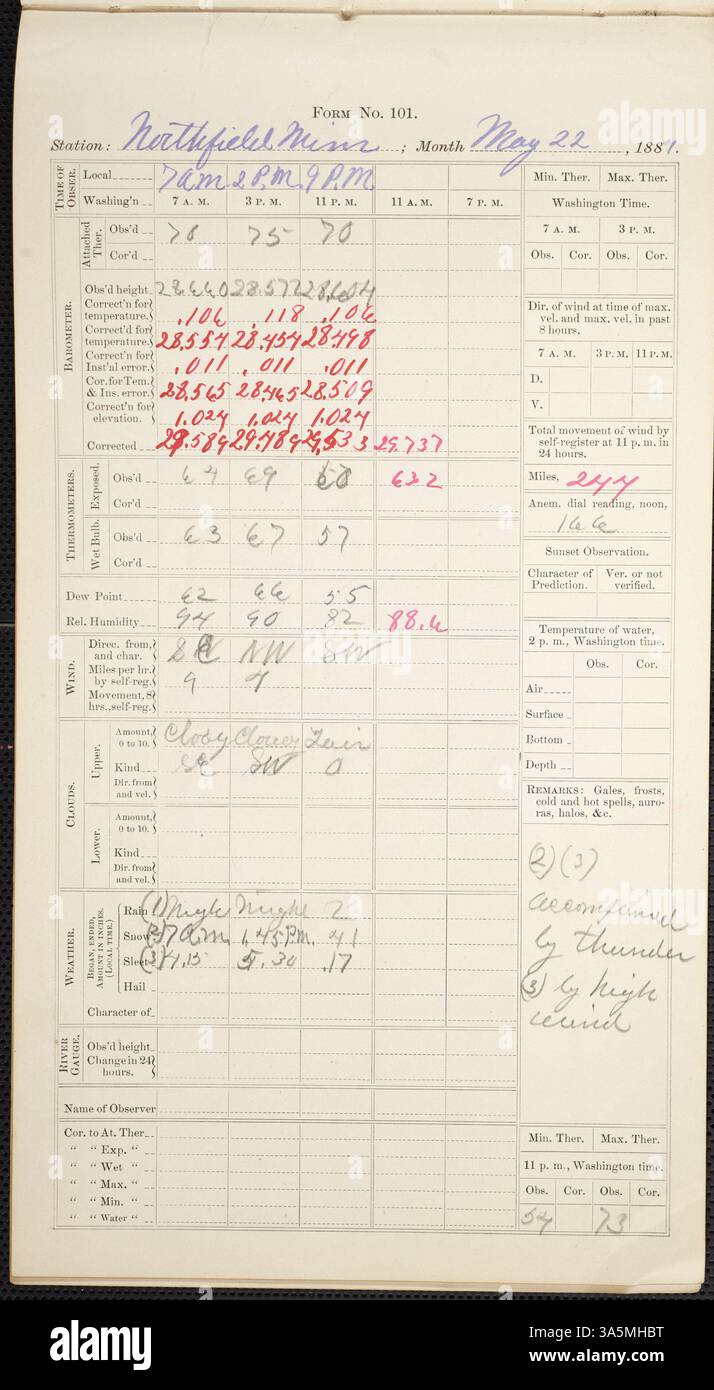 Form No. 101.
Station: Northfield Minn ; Month May 22 , 1881.
TIME OF OBSER. Local 7 am 2 P.M 9 P.M.
Washing'n 7 A. M. 3 P. M. 11 P. M. 11 A. M. 7 P. M.
BAROMETER.
Attached Ther. Obs'd 75 70
Cor'd
Obs'd height 28.660 28.572 28.604
Correct'n for temperature. .106 .118 .106
Correct'd for temperature. 28.554 28.454 28.498
Correct'n for Inst'al error. .011 .011 .011
Cor. for Tem. & Ins. error. 28.565 28.465 28.509
Correct'n for elevation. 1.024 1.024 1.024
Corrected 29.589 29.489 29.533 29.737
THERMOMETERS.
Exposed. Obs'd 64 69 62.2
Cor'd
Wet Bulb. Obs'd 63 67 57
Cor'd
Dew Point 62 66 55
Rel. Humidity 94 90 82 88.6
WIND.
Direc. from, and char. NW SW
Miles per hr. by self-reg. 9 4
Movement, 8 hrs., self-reg.
CLOUDS.
Upper. Amount, 0 to 10. Clody Cloudy Fair
Kind SE SW 0
Dir. from and vel.
Lower. Amount, 0 to 10.
Kind
Dir. from and vel.
WEATHER.
BEGAN, ENDED, AMOUNT IN INCHES. (LOCAL TIME.)
Rain (1) Night Night
Snow (2) 7 a.m. 1.45 P.M. .41
Sleet (3) 4.15 5.30 .17
Hail
Character of
RIVER GAUGE.
Obs'd height
Change in 24 hours.
Name of Observer
Cor. to At. Ther
" " Exp. "
" " Wet "
" " Max. "
" " Min. "
" " Water "
Min. Ther. Max. Ther.
Washington Time.
7 A. M. 3 P. M.
Obs. Cor. Obs. Cor.
Dir. of wind at time of max. vel. and max. vel. in past 8 hours.
7 A. M. 3 P. M. 11 P. M.
D.
V.
Total movement of wind by self-register at 11 p. m. in 24 hours.
Miles, 244
Anem. dial reading, noon,
166
Sunset Observation.
Character of Prediction. Ver. or not verified.
Temperature of water, 2 p. m., Washington time.
Obs. Cor.
Air
Surface
Bottom
Depth
REMARKS: Gales, frosts, cold and hot spells, auroras, halos, &c.
(2) (3)
accompanied
by thunder
(3) by high
wind
Min. Ther. Max. Ther.
11 p. m., Washington time.
Obs. Cor. Obs. Cor.
54 73
alamy
3A5MHBT